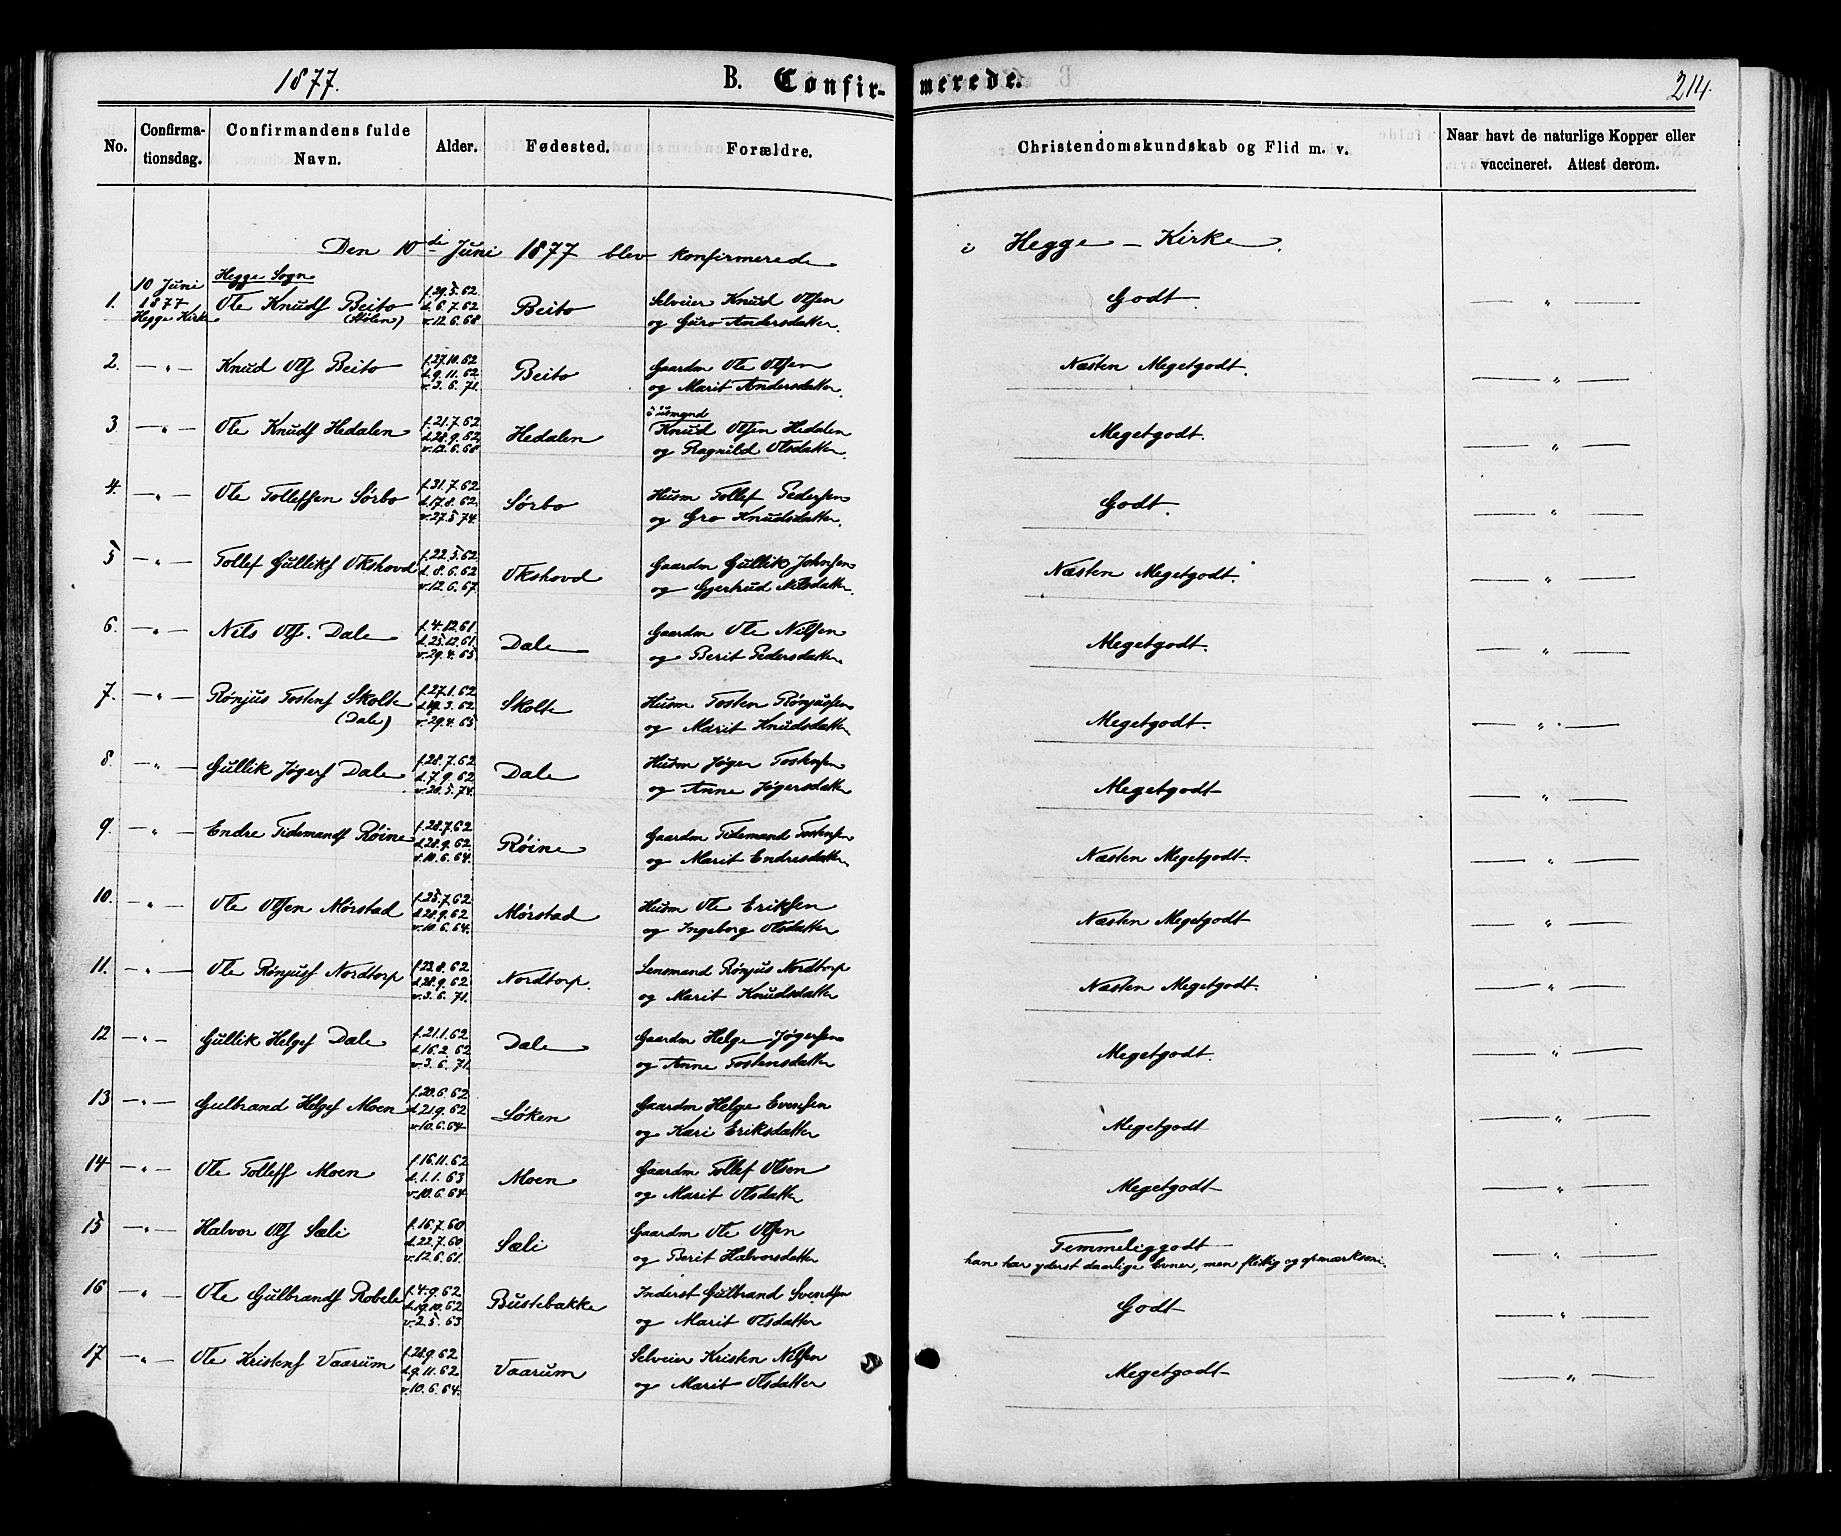 1877.
B. Confir-
merede.
214.
No.
Confirma-
tionsdag.
Confirmandens fulde
Navn.
Alder.
Fødested.
Forældre.
Christendomskundskab og Flid m. v.
Naar havt de naturlige Kopper eller
vaccineret. Attest derom.
Den 10de Juni 1877 blev konfirmerede i Hegge - Kirke.
Hegge Sogn
1. 10 Juni 1877 Hegge Kirke Ole Knuds Beito (Stølen) f.29.5.62 d.6.7.62 v.12.6.68 Beito Selveier Knud Olsen og Guro Andersdatter. Godt. — " —
2. — " — Knud Ols Beito f.27.10.62 d.9.11.62 v.3.6.71. Beito Gaardm Ole Olsen og Marit Andersdatter. Næsten Megetgodt. — " —
3 — " — Ole Knuds Hedalen f.21.7.62 d.28.9.62 v.12.6.68 Hedalen Knud Olsen Hedalen og Ragnild Olsdatter. Megetgodt. — " —
4. — " — Ole Tollefsen Sørbo f.31.7.62 d.17.8.62 v.27.5.74. Sørbo Husm Tollef Pedersen og Gro Knudsdatter. Godt. — " —
5 — " — Tollef Gulliks Okshovd f.22.5.62 d.8.6.62 v.12.6.67 Okshovd Gaardm Gullik Johnsen og Gjertrud Nilsdatter. Næsten Megetgodt. — " —
6. — " — Nils Ols. Dale f.4.12.61 d.25.12.61 v.29.4.65 Dale Gaardm Ole Nilsen og Berit Pedersdatter. Megetgodt. — " —
7. — " — Rønjus Tostens Skolte (Dale) f.27.1.62 d.19.3.62 v.29.4.65 Skolte Husm Tosten Rønjussen og Marit Knudsdatter. Megetgodt. — " —
8. — " — Gullik Jøgers Dale f.28.7.62 d.7.9.62 v.20.5.74. Dale Husm Jøger Tostensen og Anne Jøgersdatter Megetgodt — " —
9. — " — Endre Tidemands Røine f.28.7.62 d.28.9.62 v.10.6.64. Røine Gaardm Tidemand Tostensen og Marit Endresdatter Næsten Megetgodt. — " —
10. — " — Ole Olsen Mørstad f.25.7.62 d.28.9.62 v.10.6.64. Mørstad Husm Ole Eriksen og Ingeborg Olsdatter Næsten Megetgodt — " —
11. — " — Ole Rønjus Nordtorp f.23.8.62 d.28.9.62 v.3.6.71. Nordtorp. Lensmand Rønjus Nordtorp og Marit Knudsdatter Næsten Megetgodt. — " —
12 — " — Gullik Helges Dale f.21.1.62 d.16.2.62 v.3.6.71. Dale Gaardm Helge Jøgersen og Anne Tostensdatter Megetgodt. — " —
13 — " — Gulbrand Helges Moen f.20.6.62 d.21.9.62 v.10.6.64 Løken Gaardm Helge Evensen og Kari Eriksdatter Megetgodt — " —
14 — " — Ole Tollefs Moen f.16.11.62 d.1.1.63 v.10.6.64 Moen Gaardm Tollef Olsen og Marit Olsdatter Megetgodt — " —
15 — " — Halvor Ols Sæli f.16.7.60 d.22.7.60 v.12.6.61. Sæli Gaardm Ole Olsen og Berit Halvorsdatter Temmeliggodt han har yderst daarlige Evner, men flittig og opmærksom. — " —
16 — " — Ole Gulbrands Robele f.4.9.62 d.19.10.62 v.2.5.63 Bustebakke Inderst Gulbrand Svendsen og Marit Olsdatter Godt — " —
17 — " — Ole Kristens Vaarum f.28.9.62 d.9.11.62 v.10.6.64. Vaarum Selveier Kristen Nilsen og Marit Olsdatter Megetgodt — " —